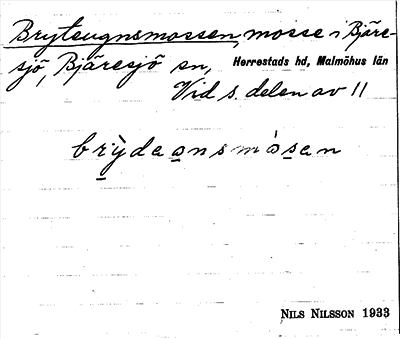 Bryteugnsmossen, mosse i Bjäre-
sjö, Bjäresjö sn, Herrestads hd, Malmöhus län
Vid s. delen av 11
brỳdeansmòsen
NILS NILSSON 1933